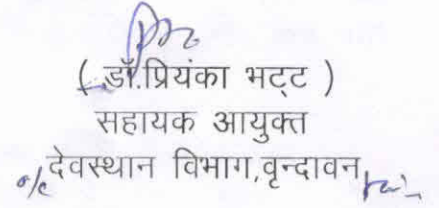 ( डॉ.प्रियंका भट्ट )
सहायक आयुक्त
o/c देवस्थान विभाग,वृन्दावन